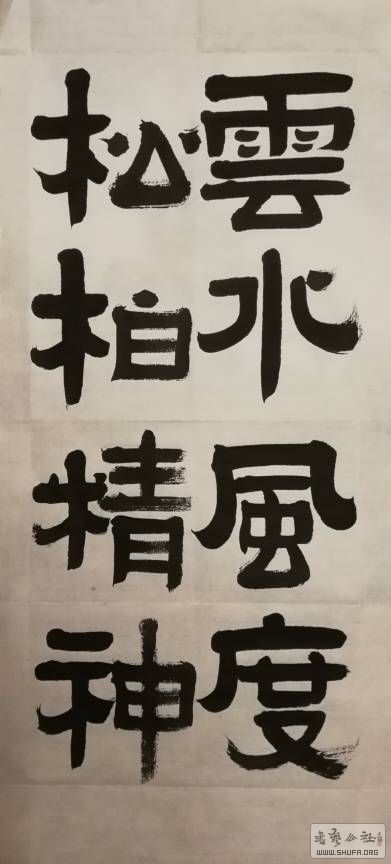 雲水風度
松柏精神
WWW.SHUFA.ORG